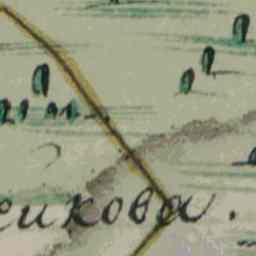 сикова.